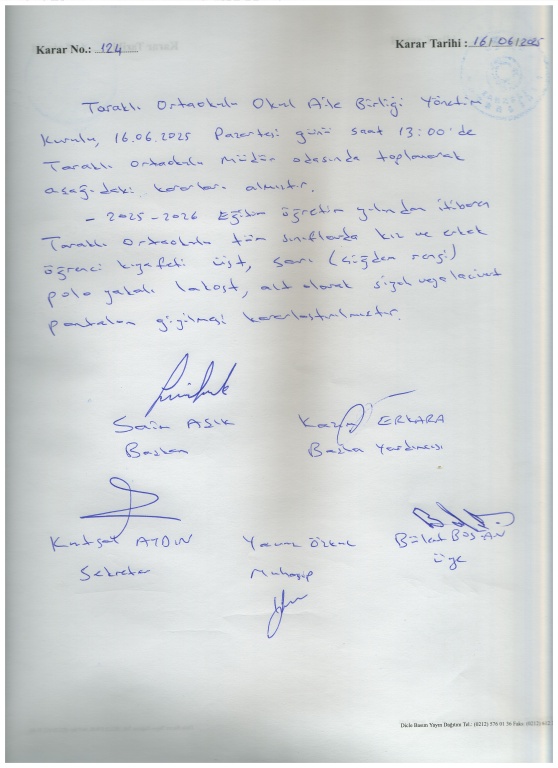 Karar No.: 124
Karar Tarihi : 16/06/2025
Taraklı Ortaokulu Okul Aile Birliği Yönetim
Kurulu, 16.06.2025 Pazartesi günü saat 13:00'de
Taraklı Ortaokulu Müdür odasında toplanarak
aşağıdaki kararları almıştır.
- 2025-2026 Eğitim öğretim yılından itibaren
Taraklı Ortaokulu tüm sınıflarda kız ve erkek
öğrenci kıyafeti üst, sarı (civciv rengi)
polo yakalı lakost, alt olarak siyah veya lacivert
pantolon giyilmesi kararlaştırılmıştır.
Saim AŞIK
Başkan
ERKARA
Başkan Yardımcısı
Kutsal AYDIN
Sekreter
Yavuz ÖZKUL
Muhasip
Bülent BOSTAN
Üye
Dicle Basım Yayın Dağıtım Tel.: (0212) 576 01 36 Faks: (0212) 612